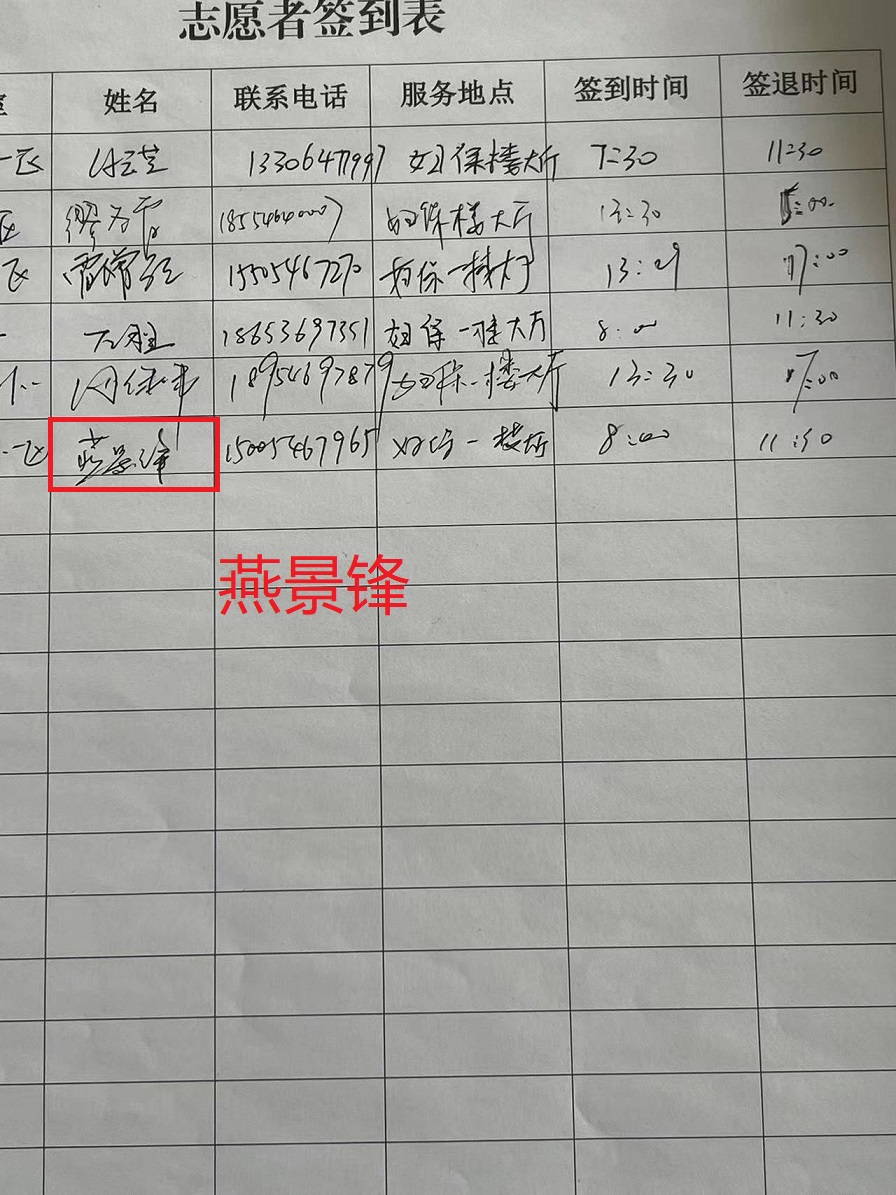 志愿者签到表
姓名 联系电话 服务地点 签到时间 签退时间
区 13306471997 妇保楼大厅 7:30 11:30
区 18554640007 妇保楼大厅 13:30 :00
区 15505467270 妇保一楼大厅 13:29 17:00
18653697351 妇保一楼大厅 8:00 11:30
18954697879 妇保一楼大厅 13:30 17:00
区 燕景锋 15005467965 妇保一楼厅 8:00 11:30
燕景锋